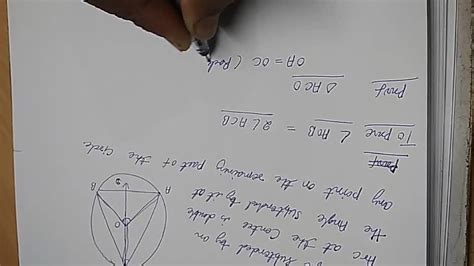 Subtended by an
Arc at the Centre is double
the Angle subtended by it at
any point on the remaining part of the Circle
Proof
To Prove ∠AOB = 2∠ACB
Proof
△ACO
OA = OC (Radi
B
A
O